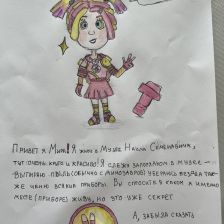 Привет я Мия! Я живу в музее
тут очень круто и красиво! Я слежу за порядком в музее –
вытираю пыль (обычно с минозавров) убираюсь везде а так-
же чиню всякие приборы. Вы спросите в каком я именно
месте (приборе) живу, но это уже секрет
А, забыла сказать